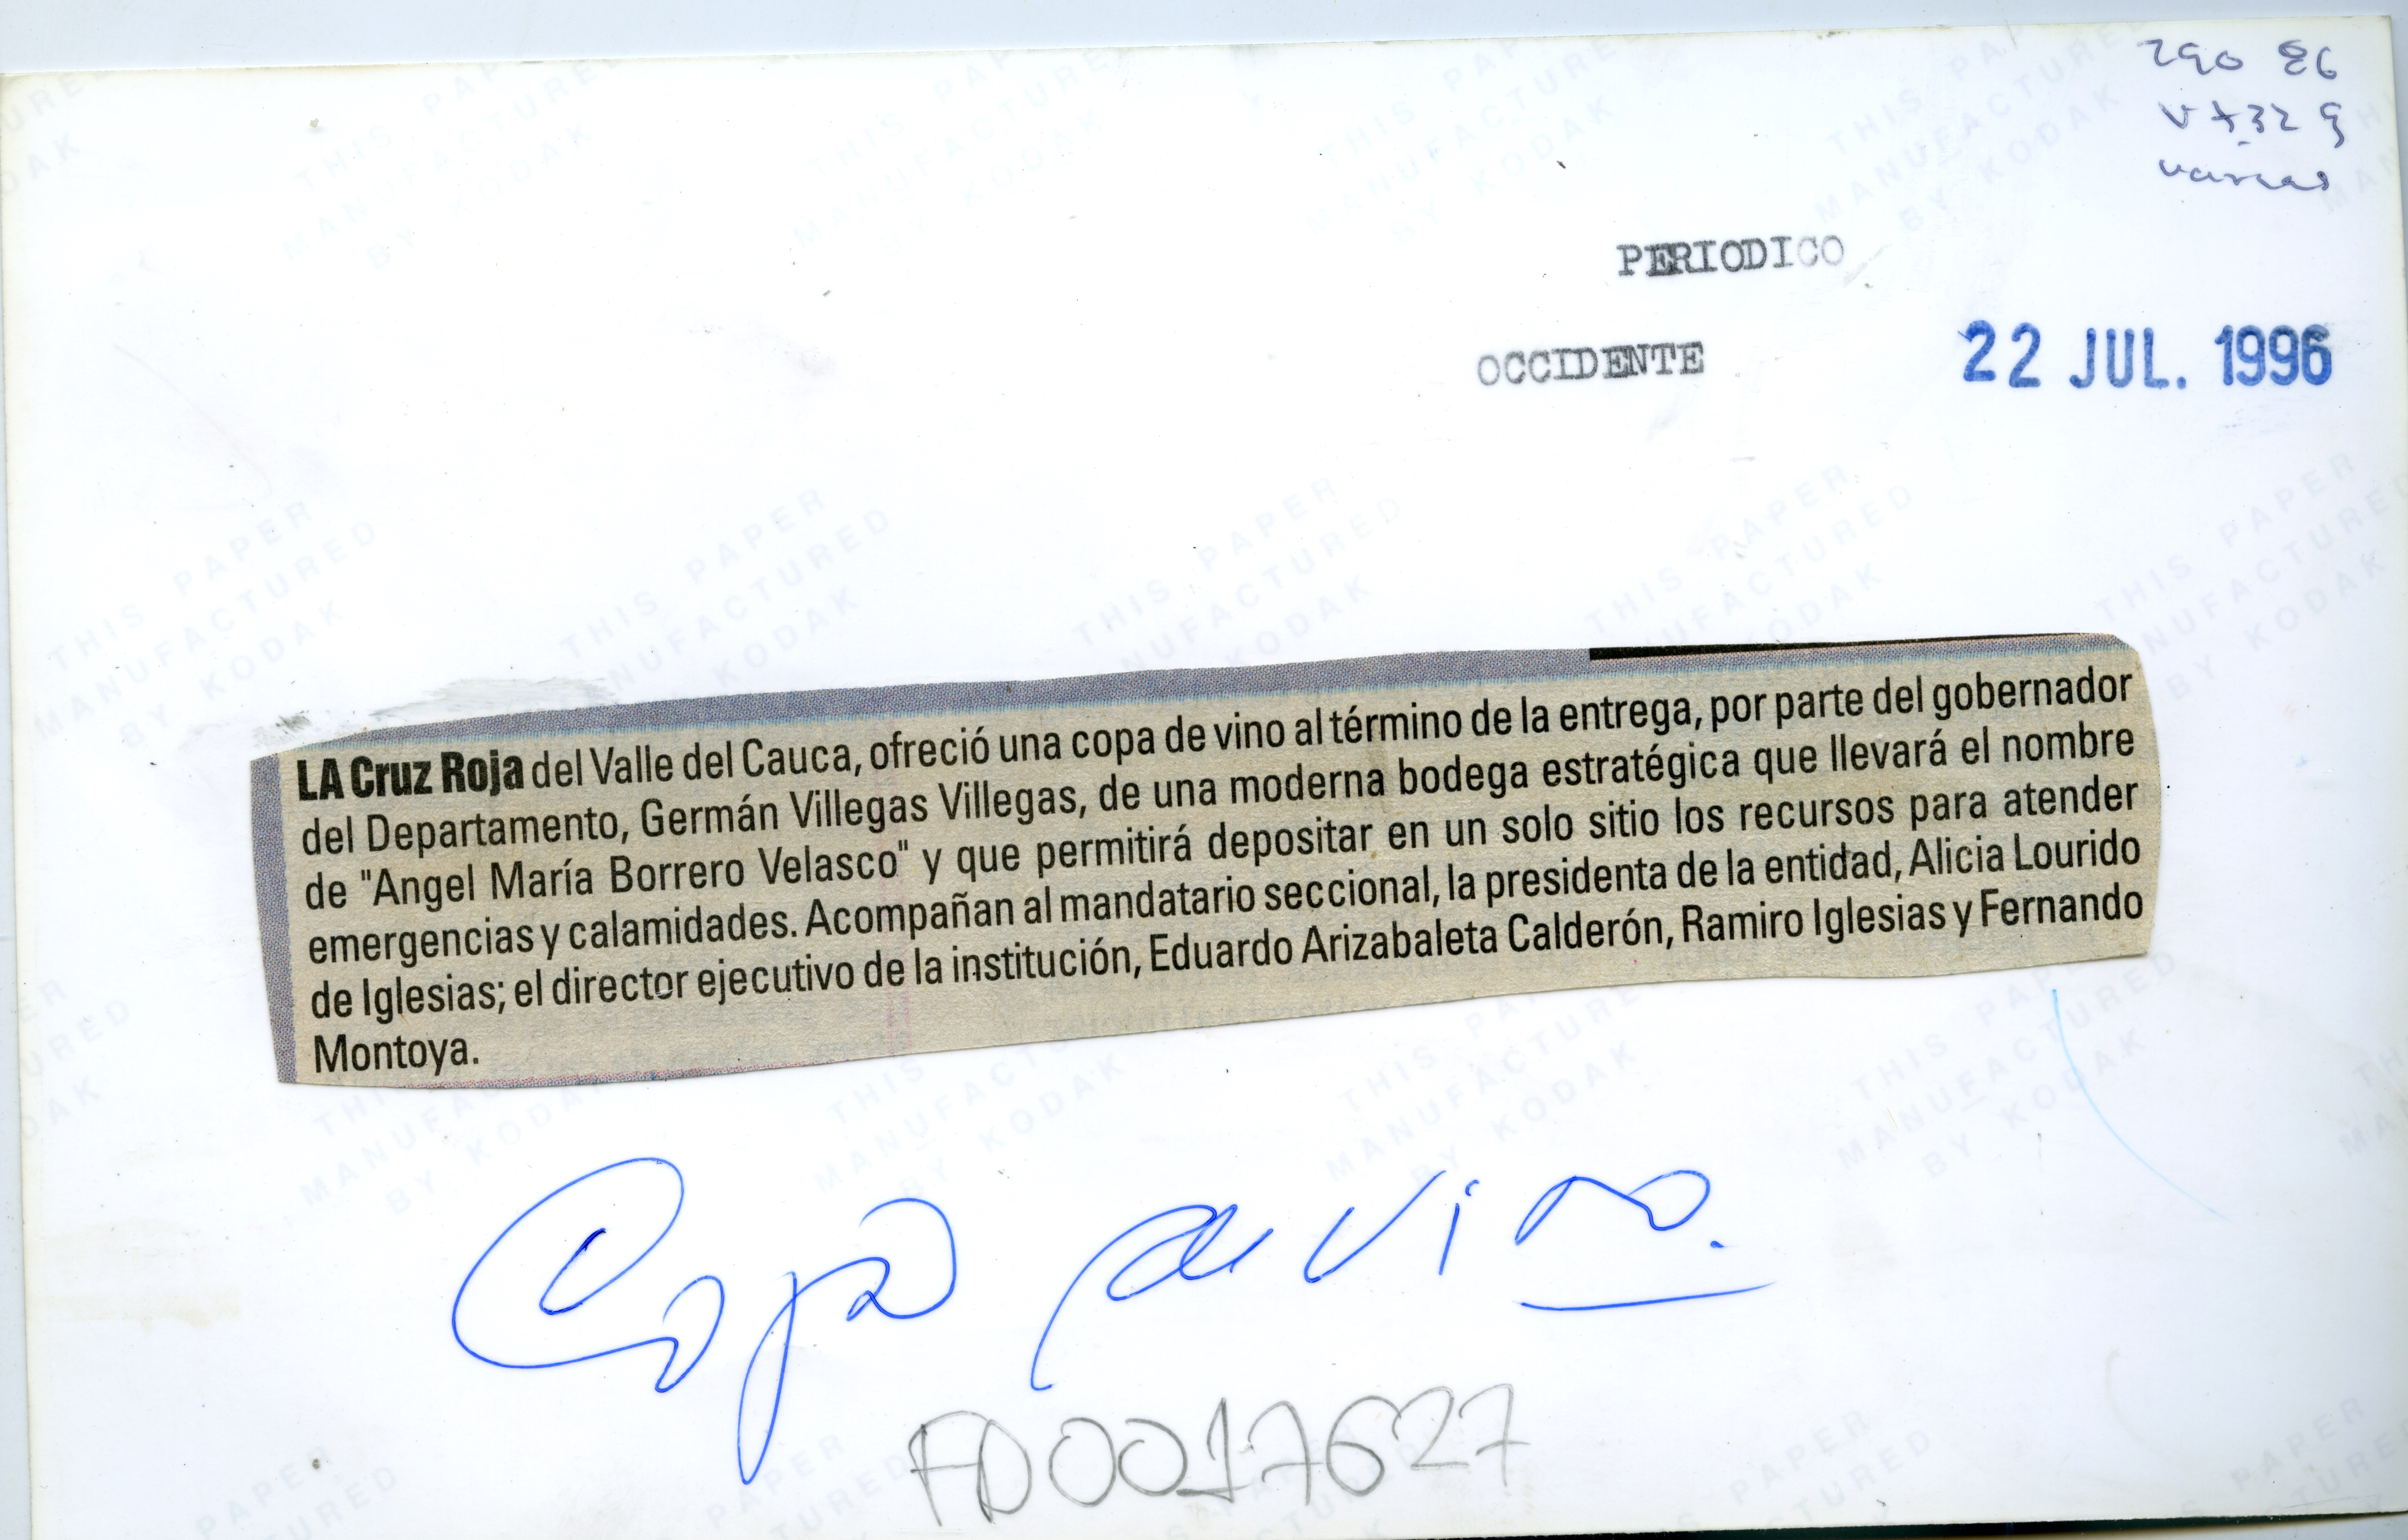 varias
PERIODICO
OCCIDENTE 22 JUL. 1996
LA Cruz Roja del Valle del Cauca, ofreció una copa de vino al término de la entrega, por parte del gobernador
del Departamento, Germán Villegas Villegas, de una moderna bodega estratégica que llevará el nombre
de "Angel María Borrero Velasco" y que permitirá depositar en un solo sitio los recursos para atender
emergencias y calamidades. Acompañan al mandatario seccional, la presidenta de la entidad, Alicia Lourido
de Iglesias; el director ejecutivo de la institución, Eduardo Arizabaleta Calderón, Ramiro Iglesias y Fernando
Montoya.
Copa de vino.
FD0017627
THIS PAPER
MANUFACTURED
BY KODAK